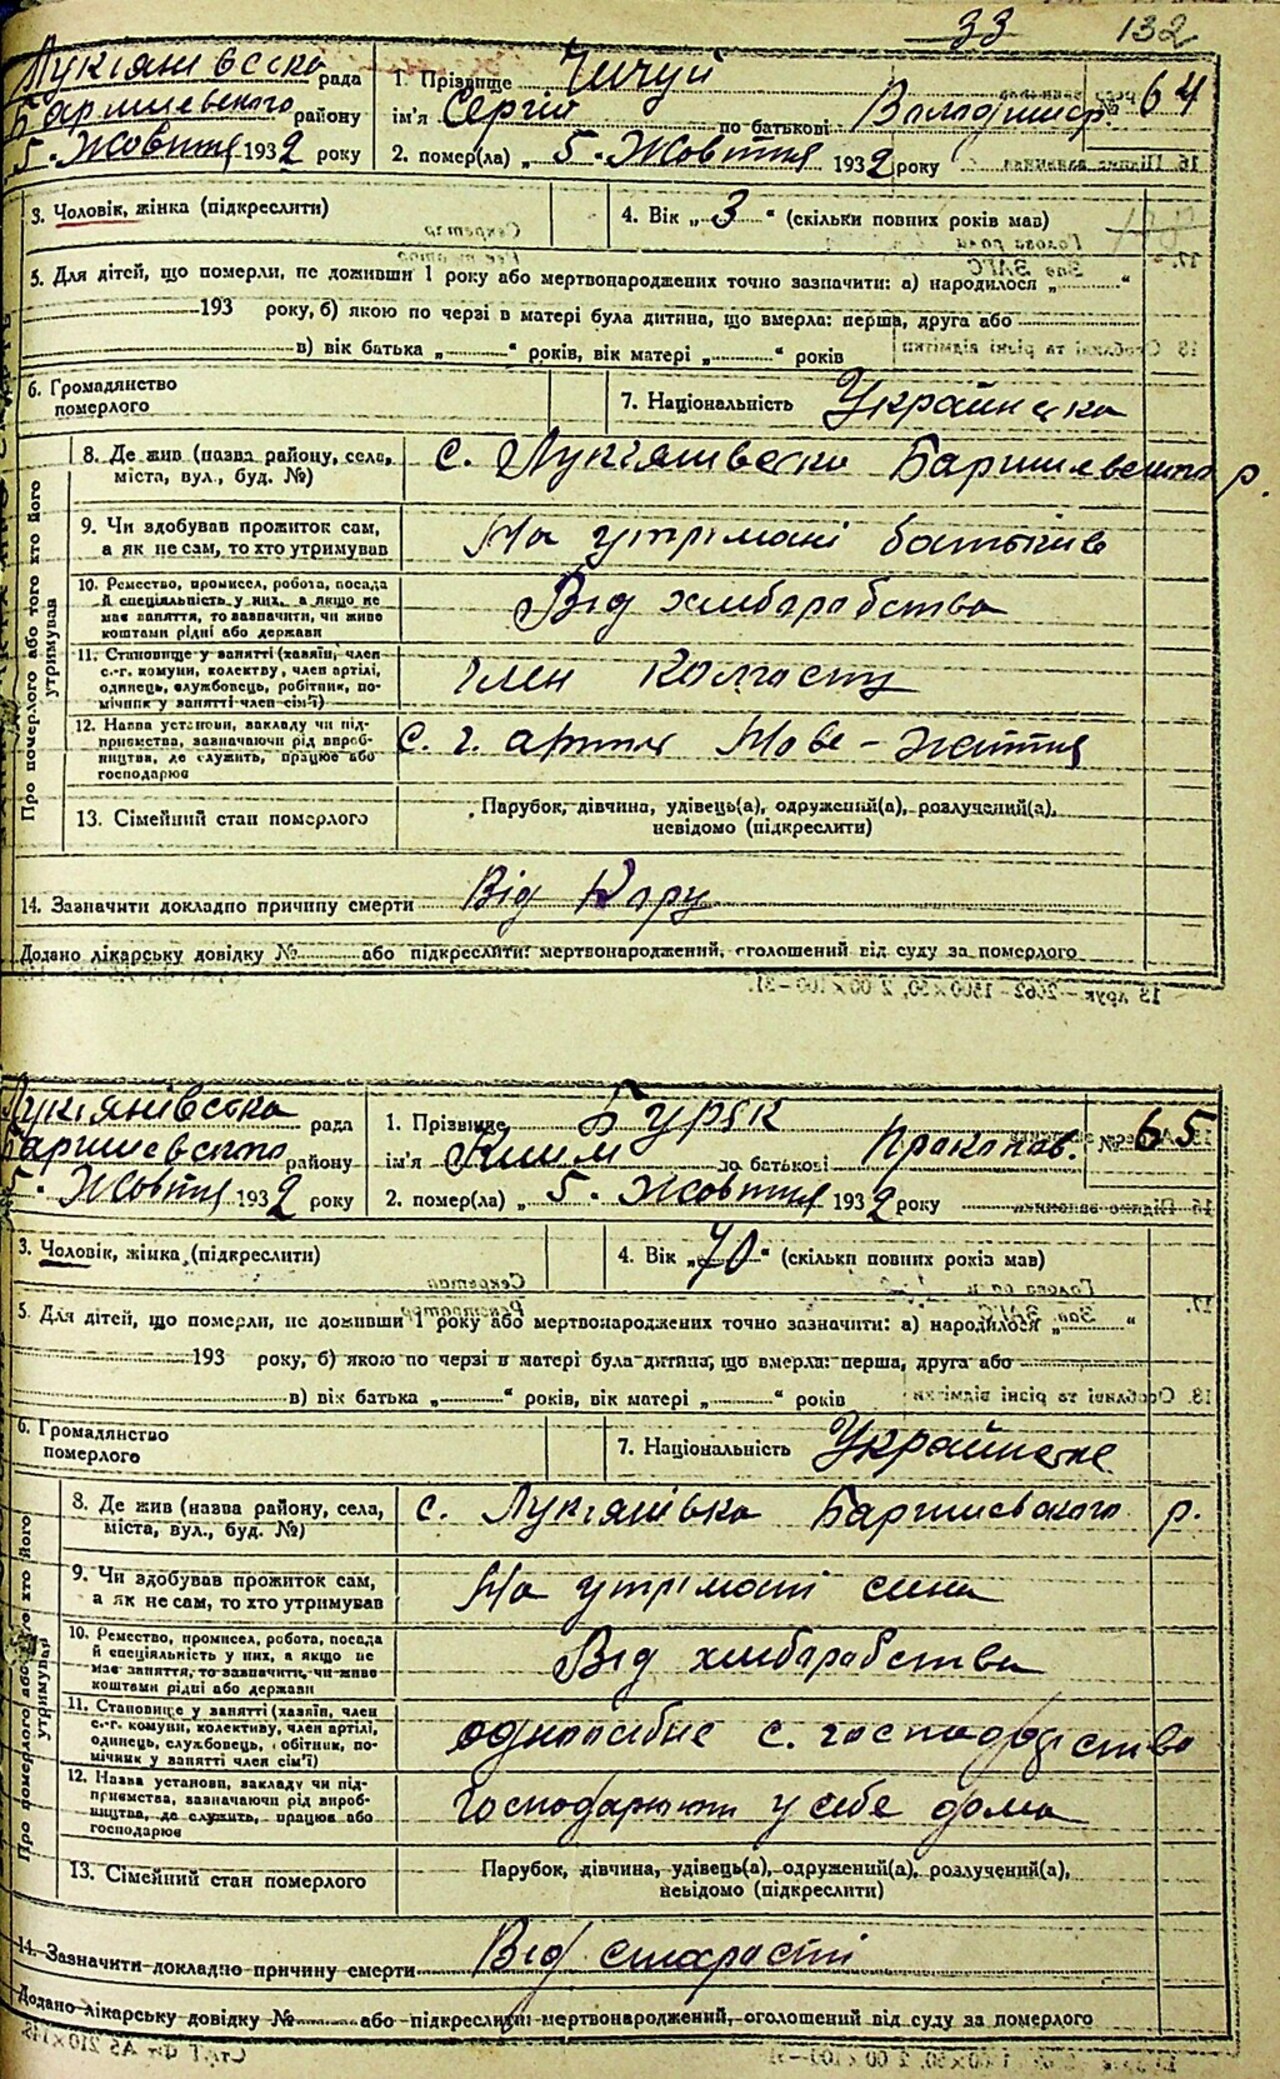 33 132
Лукіянівська рада
Баришевського району
5. Жовтня 1932 року
1. Прізвище Чичуй
ім'я Сергій по батькові Володимир. № 64
2. помер(ла) „ 5. Жовтня 1932 року
3. Чоловік, жінка (підкреслити)
4. Вік „ 3 “ (скільки повних років мав)
5. Для дітей, що померли, не доживши 1 року або мертвонароджених точно зазначити: а) народилося „ “
193 року, б) якою по черзі в матері була дитина, що вмерла: перша, друга або
в) вік батька „ “ років, вік матері „ “ років
6. Громадянство
померлого
7. Національність Українська
Про померлого або того хто його
утримував
8. Де жив (назва району, села,
міста, вул., буд. №)
с. Лукіянівська Баришевського р.
9. Чи здобував прожиток сам,
а як не сам, то хто утримував
На утрімані батьків
10. Ремество, промисел, робота, посада
й спеціяльність у них, а якщо не
має заняття, то зазначити, чи живе
коштами рідні або держави
Від хліборобства
11. Становище у занятті (хазяїн, член
с.-г. комуни, колективу, член артілі,
одинець, службовець, робітник, по-
мічник у занятті член сім'ї)
член Колгоспу
12. Назва установи, закладу чи під-
приємства, зазначаючи рід вироб-
ництва, де служить, працює або
господарює
с. г. артіль Нове-життя
13. Сімейний стан померлого
Парубок, дівчина, удівець(а), одружений(а), розлучений(а),
невідомо (підкреслити)
14. Зазначити докладно причину смерти Від Кору
Додано лікарську довідку № або підкреслити: мертвонароджений, оголошений від суду за померлого
13 друк.—2062—1500×50, 2 00×100—31.
Лукіянівська рада
Баришевського району
5. Жовтня 1932 року
1. Прізвище Буряк
ім'я Клим по батькові Прокопов. № 65
2. помер(ла) „ 5. Жовтня 1932 року
3. Чоловік, жінка (підкреслити)
4. Вік „ 70 “ (скільки повних років мав)
5. Для дітей, що померли, не доживши 1 року або мертвонароджених точно зазначити: а) народилося „ “
193 року, б) якою по черзі в матері була дитина, що вмерла: перша, друга або
в) вік батька „ “ років, вік матері „ “ років
6. Громадянство
померлого
7. Національність Українське
утримував
8. Де жив (назва району, села,
міста, вул., буд. №)
с. Лукіянівка Баришевського р.
9. Чи здобував прожиток сам,
а як не сам, то хто утримував
На утрімані сина
10. Ремество, промисел, робота, посада
й спеціяльність у них, а якщо не
має заняття, то зазначити, чи живе
коштами рідні або держави
Від хліборобства
11. Становище у занятті (хазяїн, член
с.-г. комуни, колективу, член артілі,
одинець, службовець, робітник, по-
мічник у занятті член сім'ї)
одноосібне с. господарство
12. Назва установи, закладу чи під-
приємства, зазначаючи рід вироб-
ництва, де служить, працює або
господарює
господарюють у себе дома
13. Сімейний стан померлого
Парубок, дівчина, удівець(а), одружений(а), розлучений(а),
невідомо (підкреслити)
14. Зазначити докладно причину смерти Від старості
Додано лікарську довідку № або підкреслити: мертвонароджений, оголошений від суду за померлого